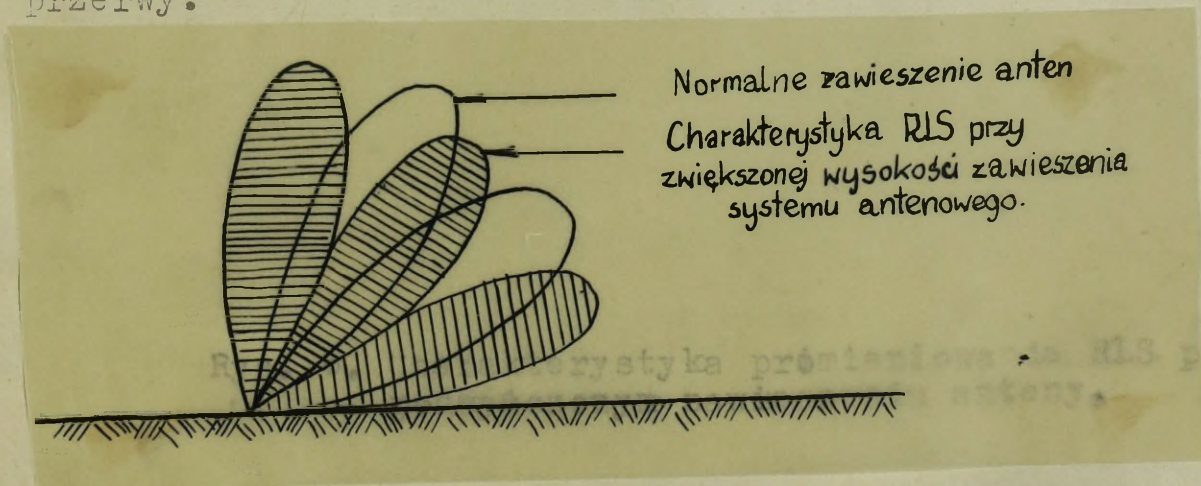 przerwy.
Normalne zawieszenie anten
Charakterystyka RLS przy
zwiększonej wysokości zawieszenia
systemu antenowego.
promieniowania RLS p
anteny.